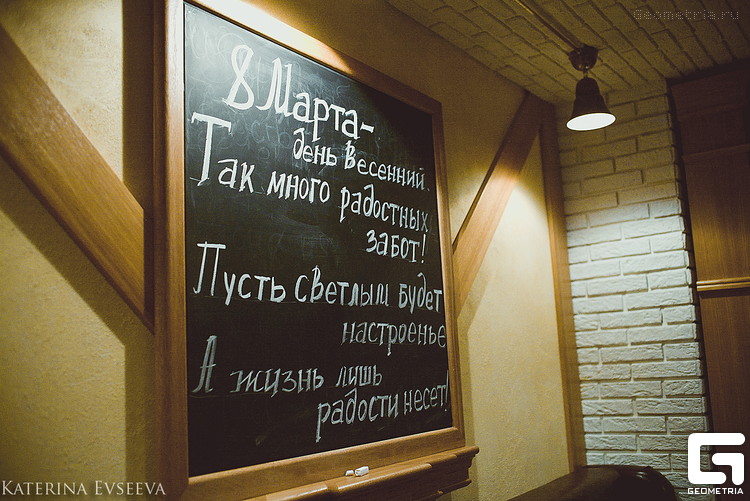 Geometria.ru
8 Марта-
день весенний.
Так много радостных
забот!
Пусть светлым будет
настроенье
А жизнь лишь
радости несет!
KATERINA EVSEEVA
GEOMETRIA